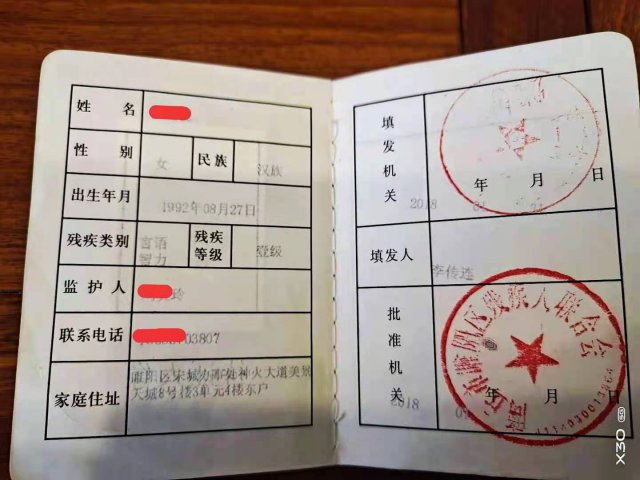 姓 名
性 别 女 民族 汉族
出生年月 1992年08月27日
残疾类别 言语
智力
残疾
等级 壹级
监 护 人 玲
联系电话 03807
家庭住址 睢阳区宋城办事处神火大道美景
天城8号楼3单元4楼东户
填发机关
2018 年 月 日
填发人 李传连
批准机关
睢阳区残疾人联合会
2018 年 月 日
X30